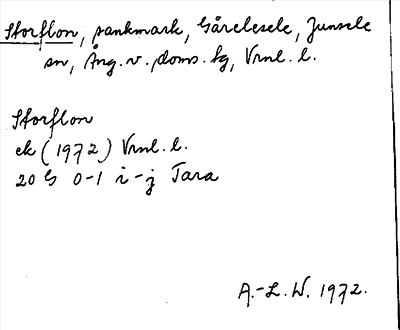 Storflon, sankmark, Gårelesele, Junsele
sn, Ång. v. doms. kg, Vrnl. l.
Storflon
ek (1972) Vrnl. l.
20 G 0-1 i-j Tara
A.-L. W. 1972.